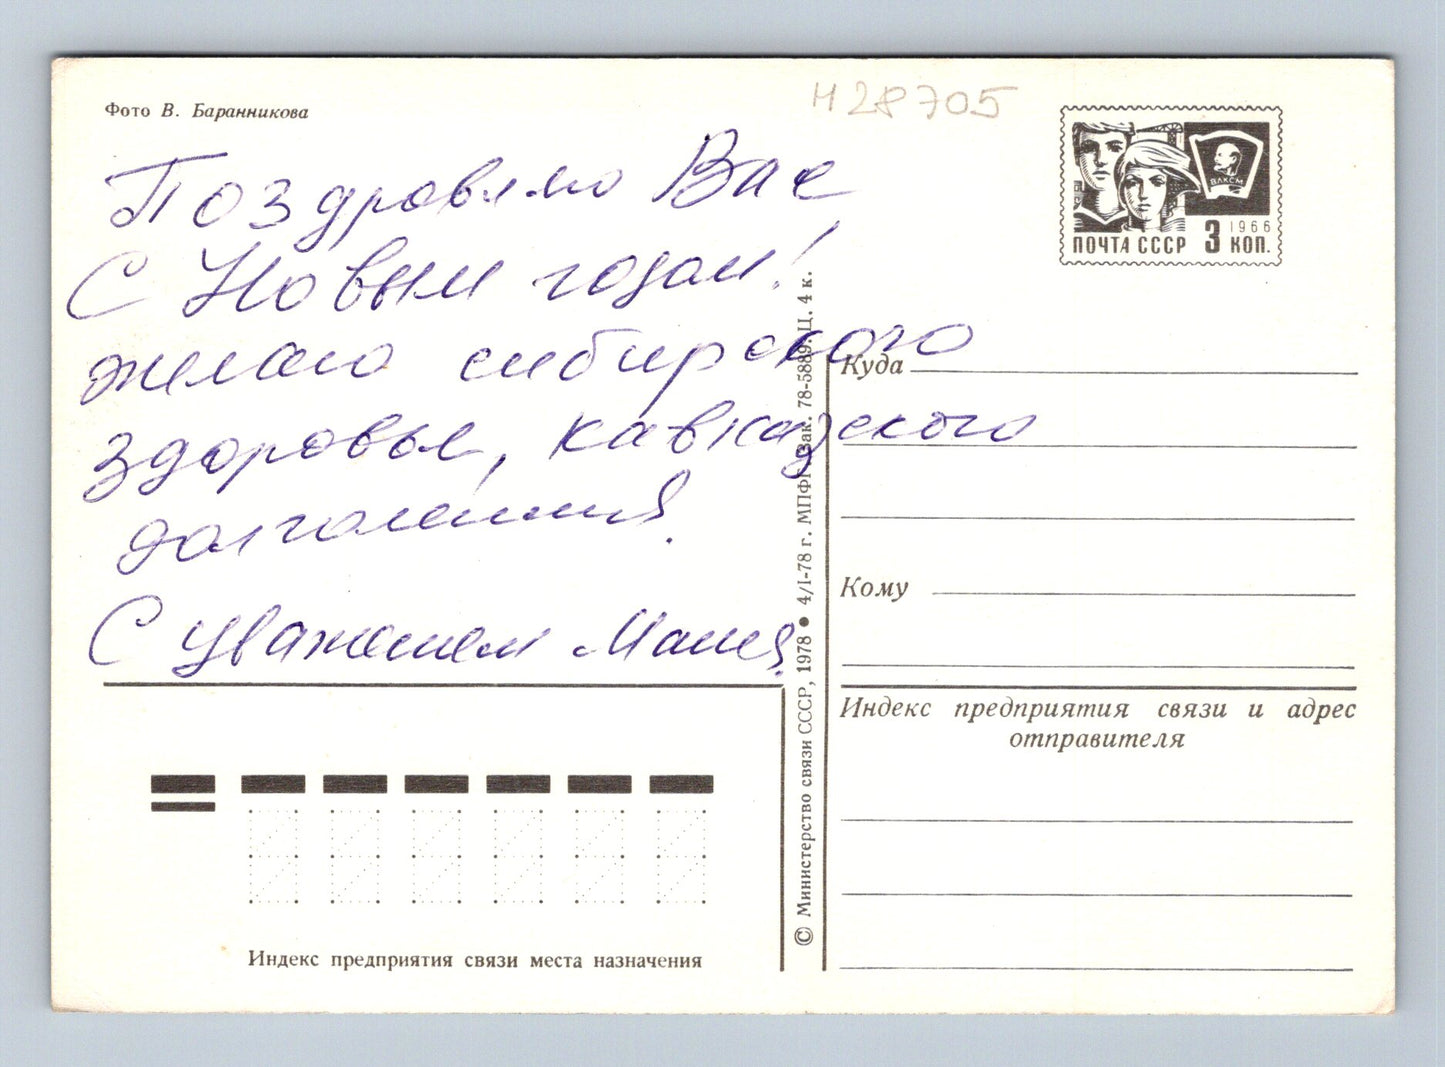 Фото В. Баранникова
Н 28705
Поздравляю Вас
С Новым годом!
желаю сибирского
здоровья, кавказского
долголетия!
С уважением Маша
ВЛКСМ
1966
ПОЧТА СССР 3 КОП.
Куда
Кому
Индекс предприятия связи и адрес
отправителя
© Министерство связи СССР, 1978 ● 4/I-78 г. МПФГ. Зак. 78-5889. Ц. 4 к.
Индекс предприятия связи места назначения